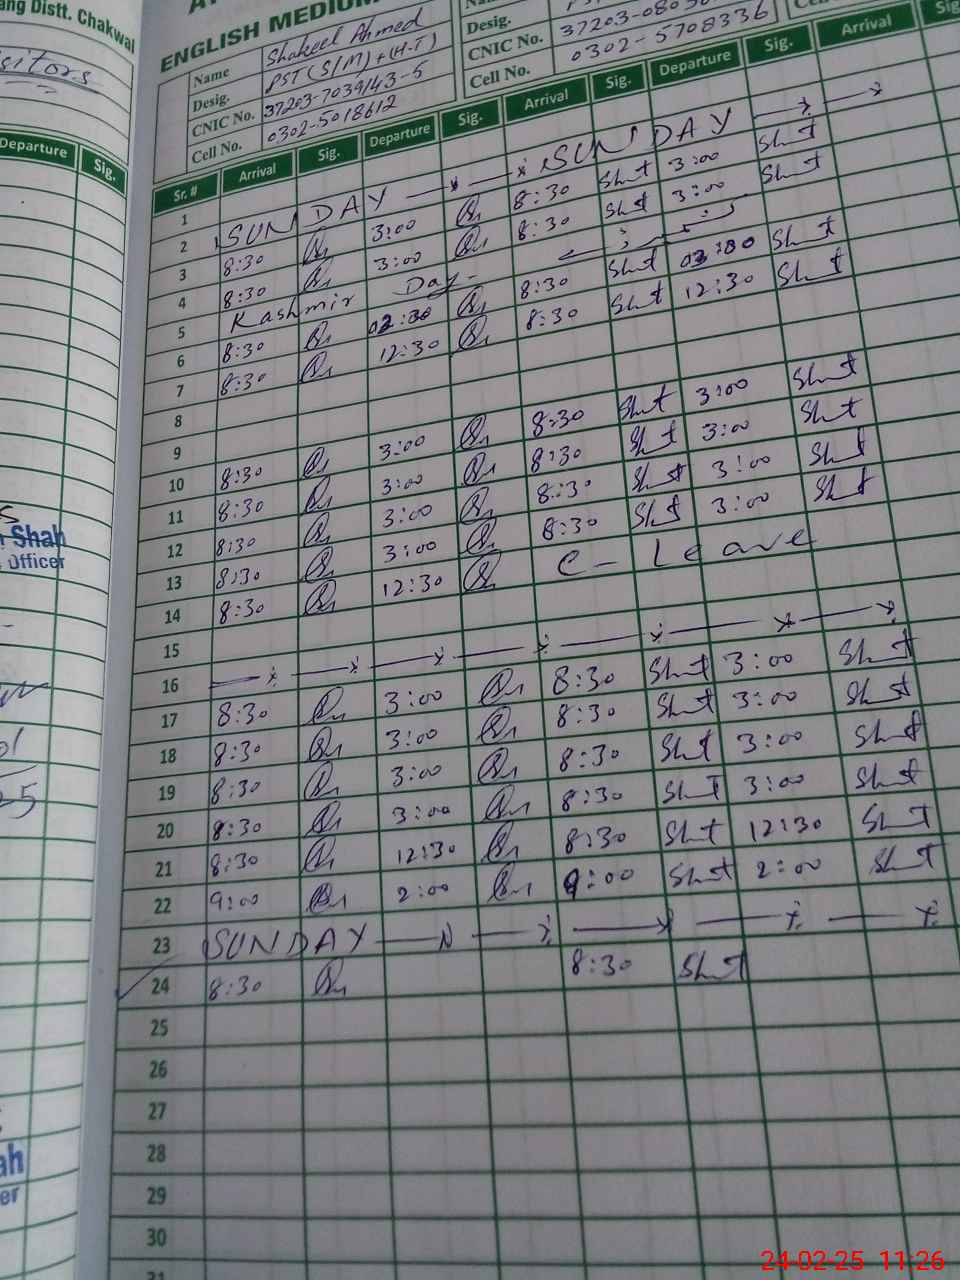 ang Distt. Chakwal
sitors
Departure Sig.
Shah
Officer
ah
er
ENGLISH MEDIUM
Name Shakeel Ahmed
Desig. PST (S/M) + (H-T) Desig.
CNIC No. 37203-7039143-5 CNIC No.
Cell No. 0302-5018612 Cell No. 0302-5708336
Sr. # Arrival Sig. Departure Sig. Arrival Sig. Departure Sig. Arrival Sig
1
2 SUNDAY SUNDAY
3 8:30 3:00 8:30 3:00
4 8:30 3:00 8:30 3:00
5 Kashmir Day
6 8:30 8:30
7 8:30 12:30 8:30 12:30
8
9
10 8:30 3:00 8:30 3:00
11 8:30 3:00 8:30 3:00
12 8:30 3:00 8:30 3:00
13 8:30 3:00 8:30 3:00
14 8:30 12:30 C- Leave
15
16
17 8:30 3:00 8:30 3:00
18 8:30 3:00 8:30 3:00
19 8:30 3:00 8:30 3:00
20 8:30 3:00 8:30 3:00
21 8:30 12:30 8:30 12:30
22 9:00 2:00 9:00 2:00
23 SUNDAY
24 8:30 8:30
25
26
27
28
29
30
31
24-02-25 11:26